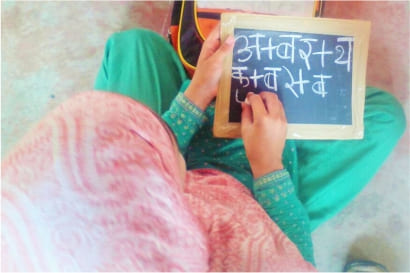 अ+ब र+थ
क+ब स+ब